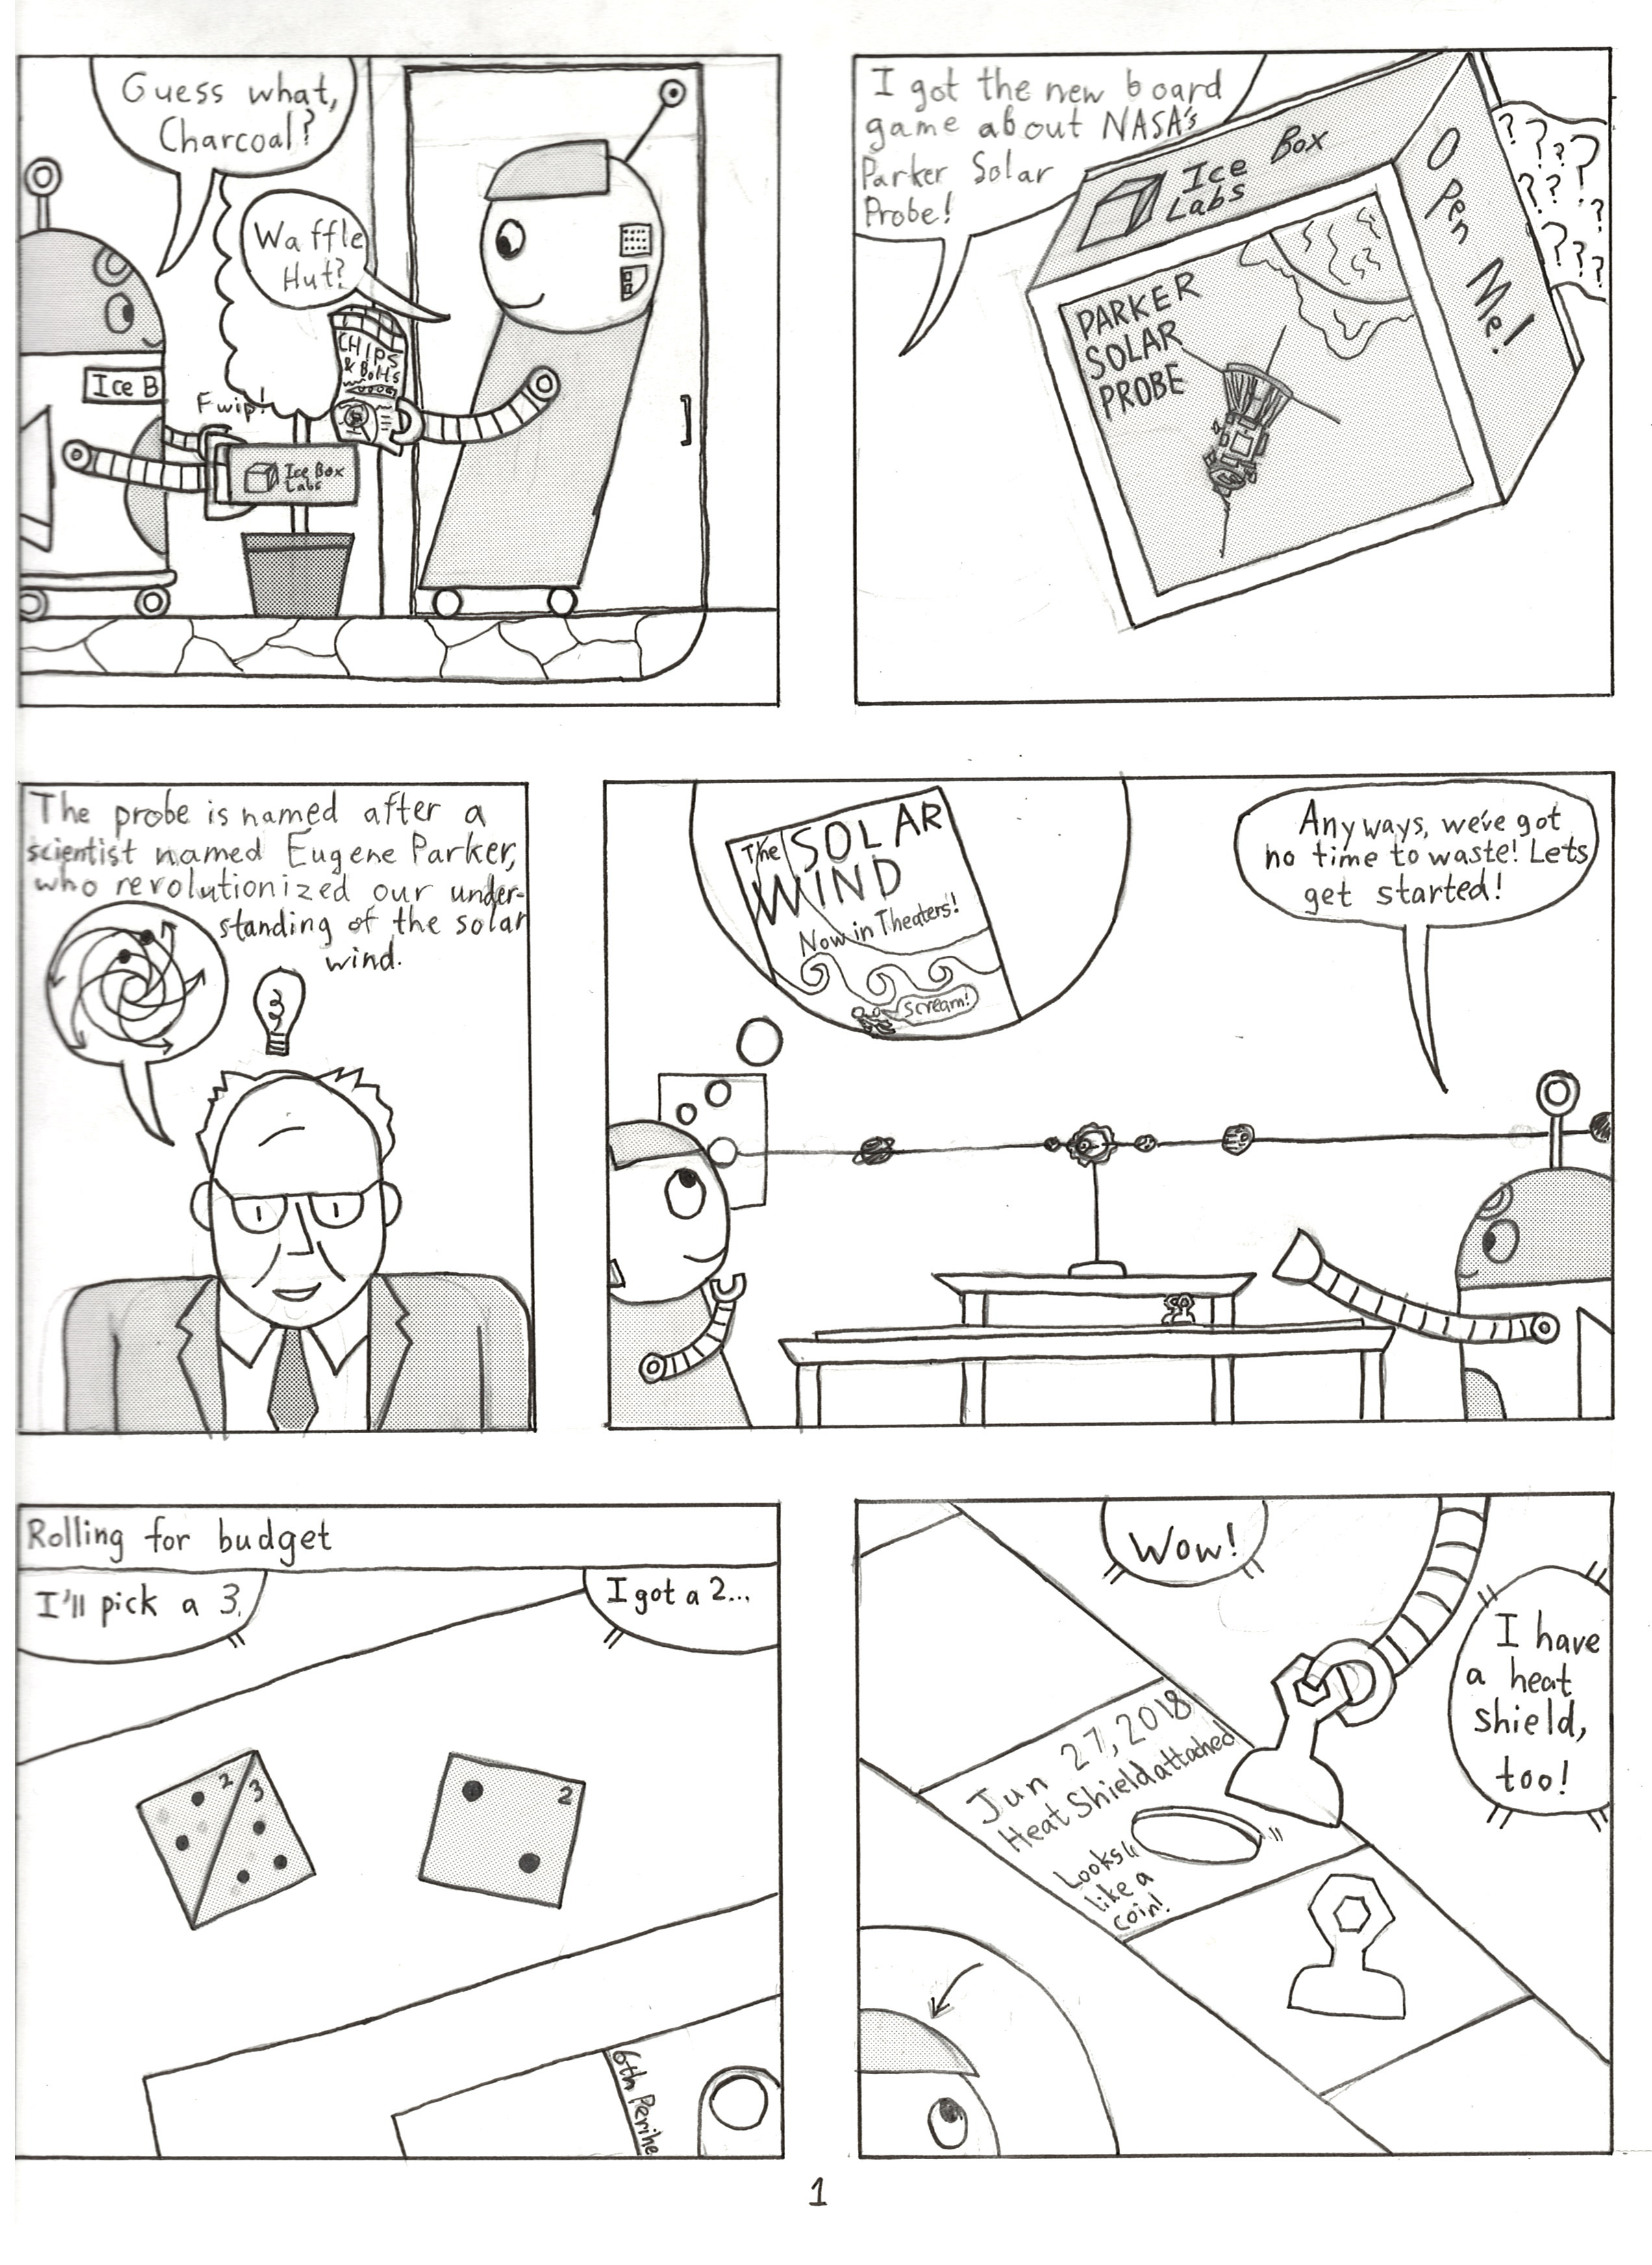 Guess what,
Charcoal?
Waffle
Hut?
CHIPS
& Bolts
Ice B
Fwip!
Ice Box
Labs
I got the new board
game about NASA's
Parker Solar
Probe!
Ice Box
Labs
Open Me!
PARKER
SOLAR
PROBE
? ? ? ?
? ? ?
? ? ?
? ?
The probe is named after a
scientist named Eugene Parker,
who revolutionized our under-
standing of the solar
wind.
The SOLAR
WIND
Now in Theaters!
Scream!
Anyways, we've got
no time to waste! Lets
get started!
Rolling for budget
I'll pick a 3.
I got a 2...
2 3
2
6th Perihe
Wow!
I have
a heat
shield,
too!
Jun 27, 2018
Heat Shield attached
Looks
like a
coin!
1